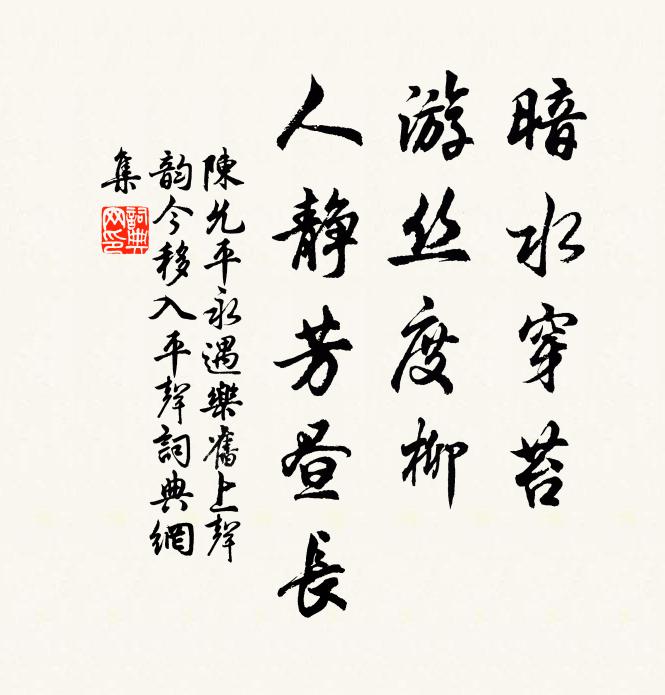 暗水穿苔
游丝度柳
人静芳昼长
陳允平永遇樂舊上聲
韵今移入平聲詞典網
集
詞典
网印